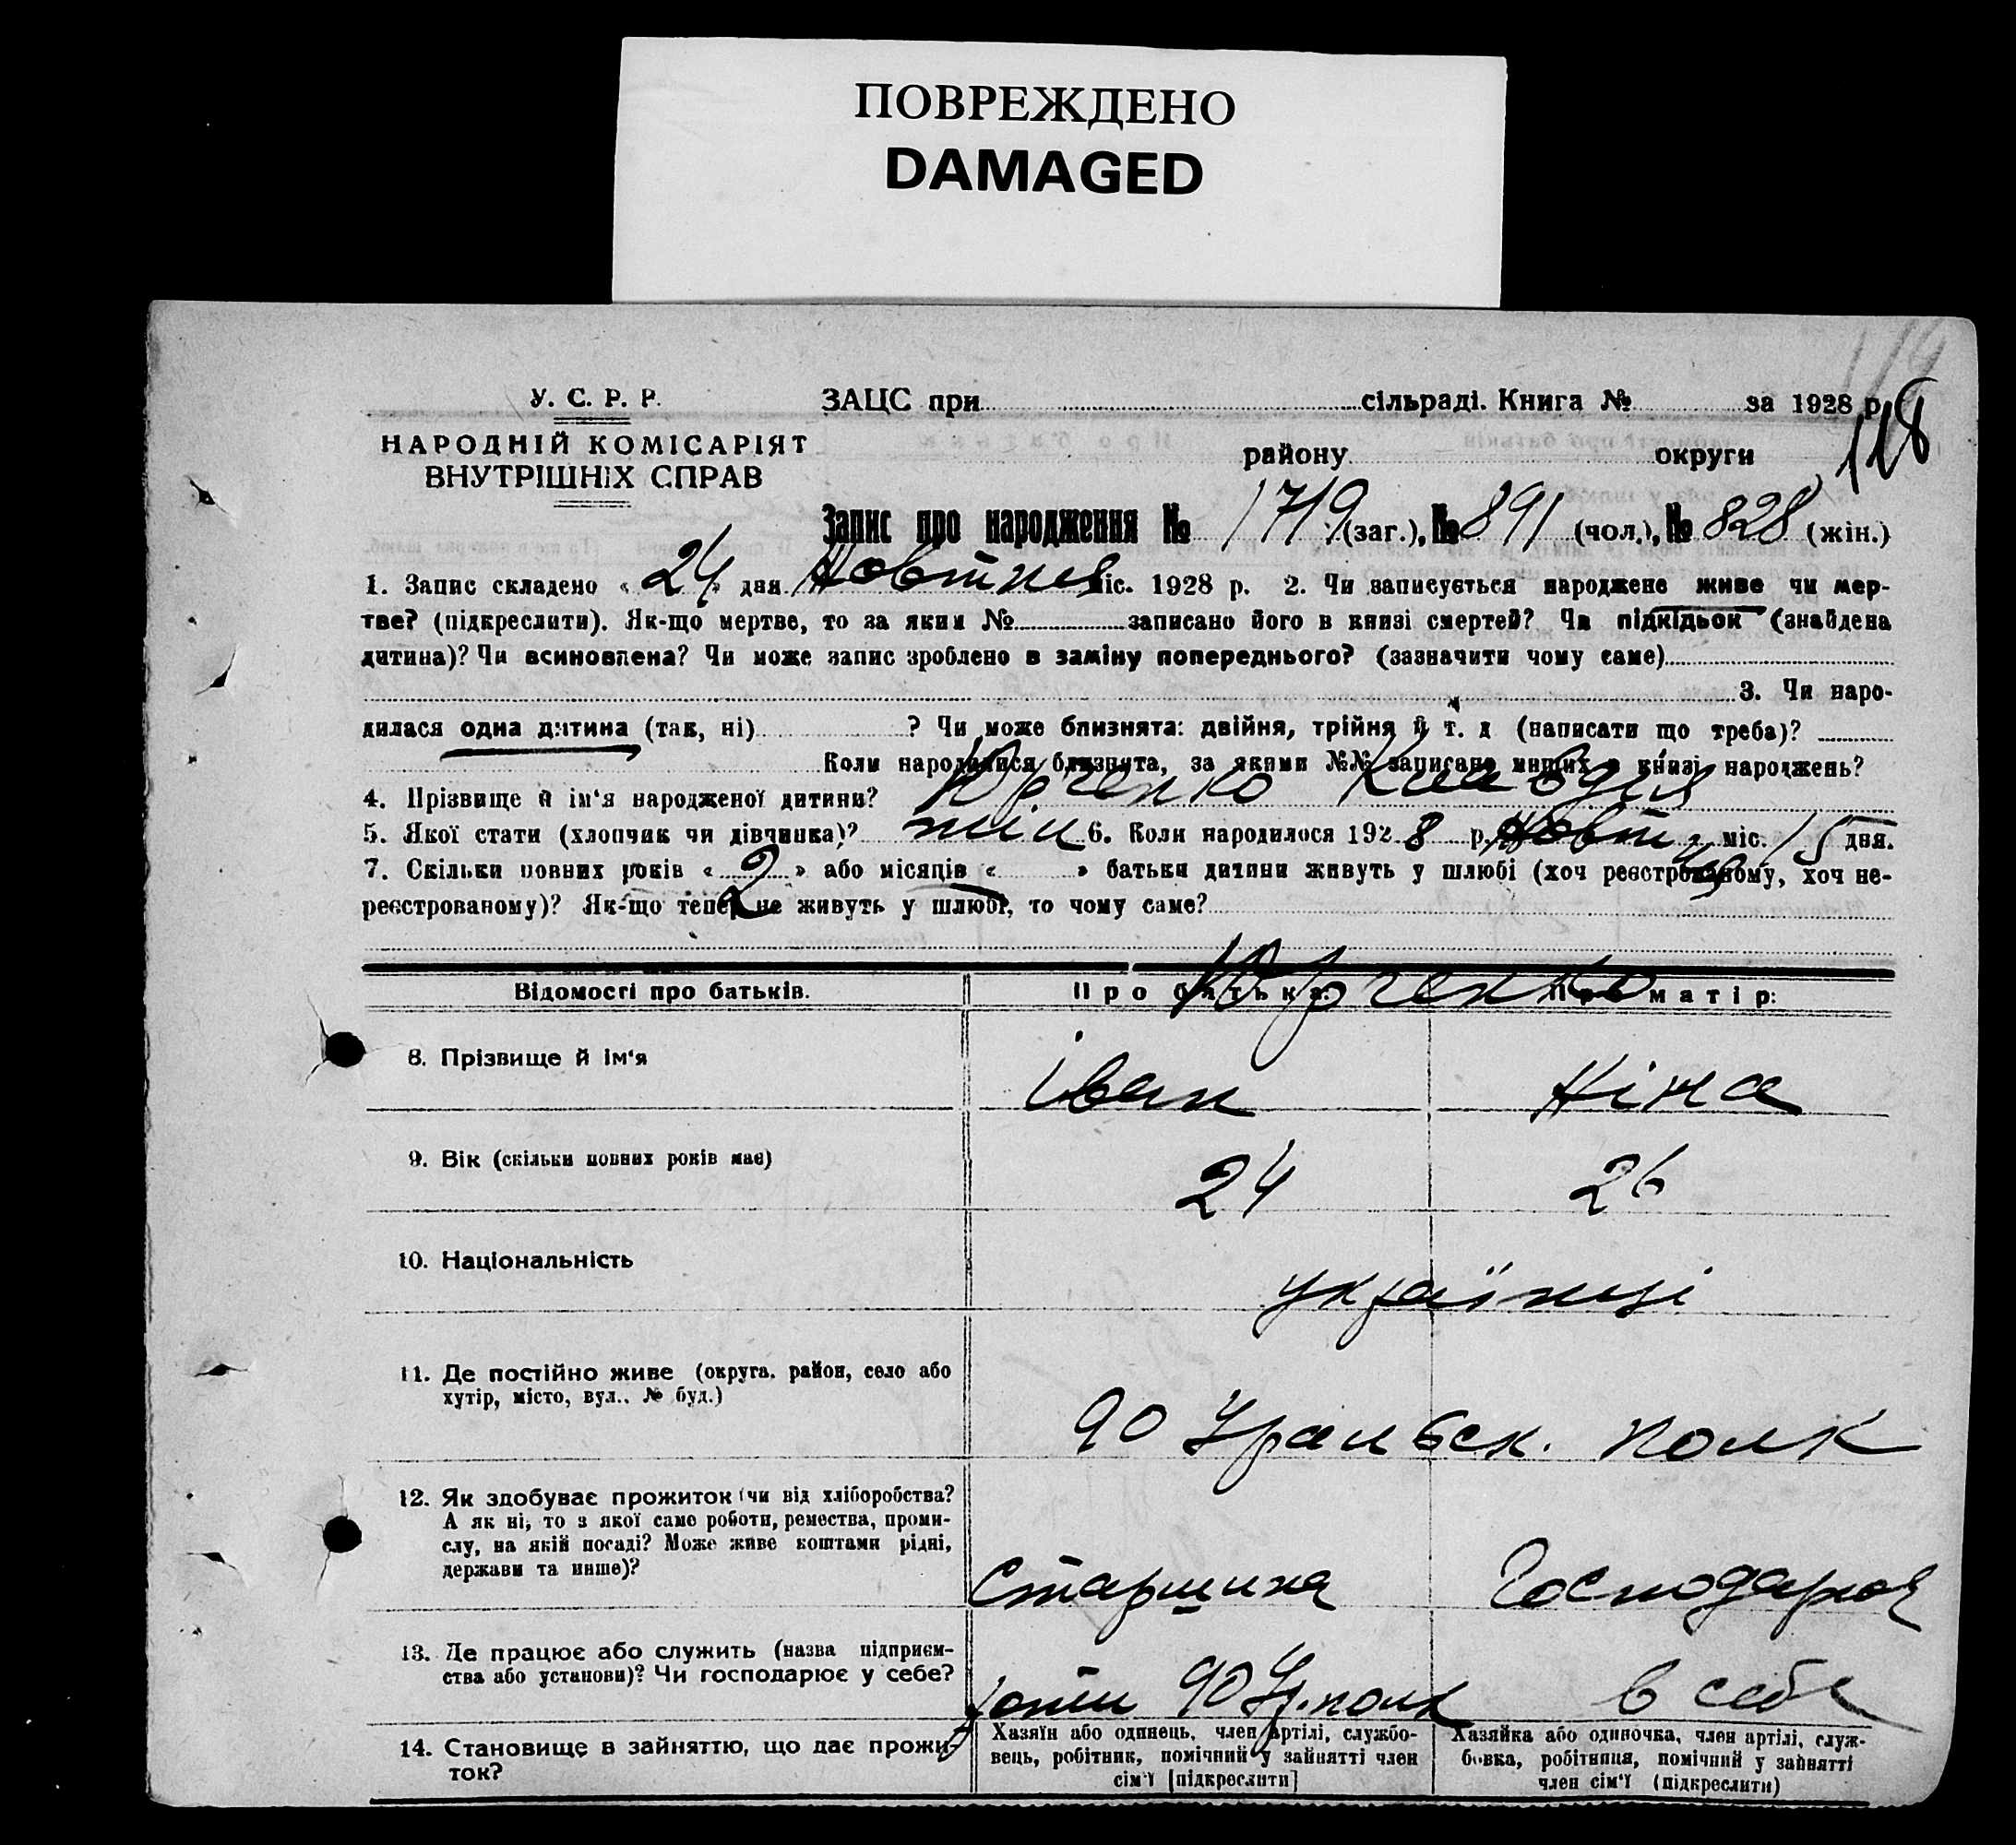 ПОВРЕЖДЕНО
DAMAGED
119
У. С. Р. Р.
ЗАЦС при сільраді. Книга № за 1928 р.
118
НАРОДНІЙ КОМІСАРІЯТ
ВНУТРІШНІХ СПРАВ
району округи
Запис про народження № 1719 (заг.), № 891 (чол.), № 828 (жін.)
1. Запис складено « 24 » дня Жовтня міс. 1928 р. 2. Чи записується народжене живе чи мер-
тве? (підкреслити). Як-що мертве, то за яким № записано його в книзі смертей? Чи підкідьок (знайдена
дитина)? Чи всиновлена? Чи може запис зроблено в заміну попереднього? (зазначити чому саме)
3. Чи наро-
дилася одна дитина (так, ні) ? Чи може близнята: двійня, трійня й т. д (написати що треба)?
Коли народилися близнята, за якими №№ записано инших в книзі народжень?
4. Прізвище й ім'я народженої дитини? Юрченко Клавдия
5. Якої стати (хлопчик чи дівчинка)? жін 6. Коли народилося 1928 р. Жовтня міс. 15 дня.
7. Скільки повних років « 2 » або місяців « » батьки дитини живуть у шлюбі (хоч реєстрованому, хоч не-
реєстрованому)? Як-що тепер не живуть у шлюбі, то чому саме?
Юрченко
Відомості про батьків. Про батька: Про матір:
8. Прізвище й ім'я Іван Ніна
9. Вік (скільки повних років має) 24 26
10. Національність українці
11. Де постійно живе (округа, район, село або
хутір, місто, вул., № буд.) 90 Уральск. полк
12. Як здобуває прожиток (чи від хліборобства?
А як ні, то з якої саме роботи, ремества, проми-
слу, на якій посаді? Може живе коштами рідні,
держави та инше)? Старшина Господарює
13. Де працює або служить (назва підприєм-
ства або установи)? Чи господарює у себе? роти 90 Ур. полк в себе
14. Становище в зайняттю, що дає прожи-
ток?
Хазяїн або одинець, член артілі, службо-
вець, робітник, помічний у зайнятті член
сім'ї [підкреслити]
Хазяйка або одиночка, член артілі, служ-
бовка, робітниця, помічний у зайнятті
член сім'ї (підкреслити)